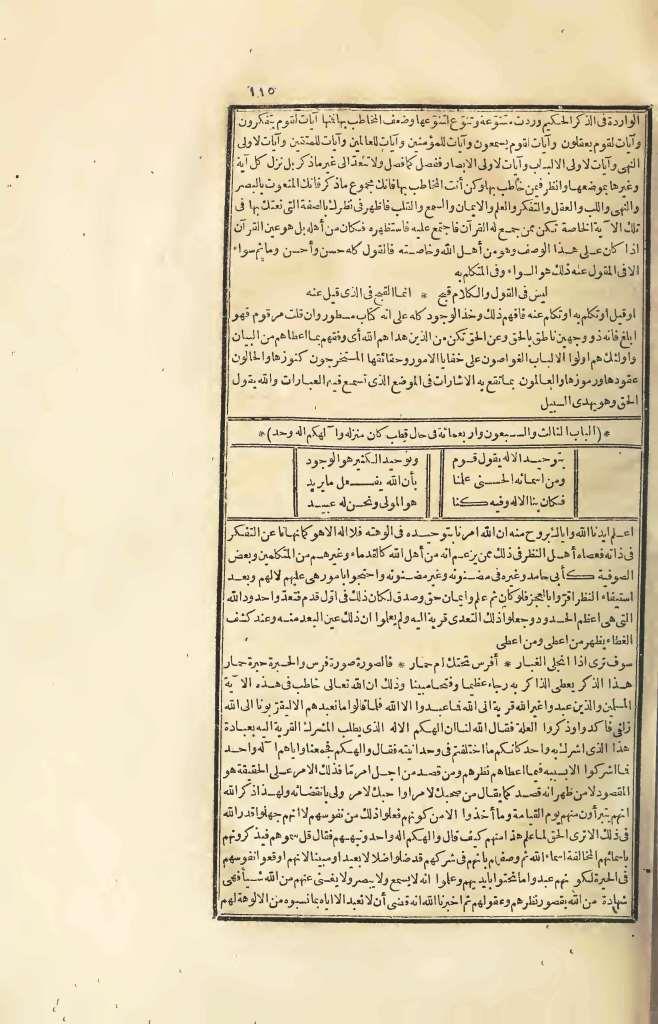 ١١٥
الواردة فى الذكر الحكيم وردت متنوعة وتنوع لتنوعها وصف المخاطب بها فمنها آيات لقوم يتفكرون
وآيات لقوم يعقلون وآيات لقوم يسمعون وآيات للمؤمنين وآيات للعالمين وآيات للمتقين وآيات لاولى
النهى وآيات لاولى الالباب وآيات لاولى الابصار ففصل كما فصل ولا تتعد الى غير ما ذكر بل نزل كل آية
وغيرها بموضعها وانظر فيمن خاطب بها وكن أنت المخاطب بها فانك مجموع ما ذكر فانك المنعوت بالبصر
والنهى واللب والعقل والتفكر والعلم والايمان والسمع والقلب فاظهر فى نظرك بالصفة التى نعتك بها فى
تلك الآية الخاصة تكن ممن جمع له القرآن فاجتمع عليه فاستظهره فكان من أهله بل هو عين القرآن
اذا كان على هذا الوصف وهو من أهل الله وخاصته فالقول كله حسن وأحسن وما ثم سواء
الا فى المقول عنه ذلك هو السواء وفى المتكلم به
ليس فى القول والكلام قبيح * انما القبح فى الذى قيل عنه
او قيل او تكلم به او تكلم عنه فافهم ذلك وخذ الوجود كله على انه كتاب مسطور وان قلت مرقوم فهو
ابلغ فانه ذو وجهين ناطق بالحق وعن الحق تكن من الذين هداهم الله أى وفقهم بما اعطاهم من البيان
واولئك هم اولوا الالباب الغواصون على خفايا الامور وحقائقها المستخرجون كنوزها والحالون
عقودها ورموزها والعالمون بما تقع به الاشارات فى الموضع الذى تسمع فيه العبارات والله يقول
الحق وهو يهدى السبيل
*(الباب الثالث والسبعون واربعمائة فى حال قطب كان منزله والهكم اله واحد)*
بتوحيد الاله يقول قوم وتوحيد الكثير هو الوجود
ومن اسمائه الحسنى علمنا بأن الله يفعل ما يريد
فكان بنا الاله وفيه كنا هو المولى ونحن له عبيد
اعلم ايدنا الله واياك بروح منه ان الله امرنا بتوحيده فى الوهته فلا اله الا هو كما نهانا عن التفكر
فى ذاته فعصاه أهل النظر فى ذلك ممن يزعم انه من أهل الله كالقدماء وغيرهم من المتكلمين وبعض
الصوفية كأبى حامد وغيره فى مضنونه وغير مضنونه واحتجوا بامور هى عليهم لا لهم وبعد
استيفاء النظر اقروا بالعجز فلو كان ثم علم وايمان حق وصدق لكان ذلك فى اول قدم فتعدوا حدود الله
التى هى اعظم الحدود وجعلوا ذلك التعدى قربة اليه ولم يعلموا ان ذلك عين البعد منه وعند كشف
الغطاء يظهر من اعطى ومن اعطى
سوف ترى اذا انجلى الغبار * أفرس تحتك ام حمار * فالصورة صورة فرس والخبرة خبرة حمار
هذا الذكر يعطى الذاكر به رجاء عظيما وفتحا مبينا وذلك ان الله تعالى خاطب فى هذه الآية
المسلمين والذين عبدوا غير الله قربة الى الله فما عبدوا الا الله فلما قالوا ما نعبدهم الا ليقربونا الى الله
زلفى فاكدوا وذكروا العلة فقال الله لنا ان الهكم الاله الذى يطلب المشرك القربة اليه بعبادة
هذا الذى اشرك به واحد كانكم ما اختلفتم فى وحدانيته فقال والهكم فجمعنا واياهم اله واحد
فما اشركوا الا بسببه فيما اعطاهم نظرهم ومن قصد من اجل امر ما فذلك الامر على الحقيقة هو
المقصود لا من ظهر انه قصد كما يقال من صحبك لامر او احبك لامر ولى بانقضائه ولهذا ذكر الله
انهم يتبرأون منهم يوم القيامة وما أخذوا الا من كونهم فعلوا ذلك من نفوسهم لا انهم جهلوا قدر الله
فى ذلك الا ترى الحق لما علم هذا منهم كيف قال والهكم اله واحد ونبههم فقال قل سموهم فيذكرونهم
باسمائهم المخالفة اسماء الله ثم وصفهم بانهم فى شركهم قد ضلوا ضلالا بعيدا او مبينا لانهم اوقعوا نفوسهم
فى الحيرة لكونهم عبدوا ما نحتوا بايديهم وعلموا انه لا يسمع ولا يبصر ولا يغنى عنهم من الله شيأ فهى
شهادة من الله بقصور نظرهم وعقولهم ثم اخبرنا الله انه قضى أن لا نعبد الا اياه بما نسبوه من الالوهة لهم